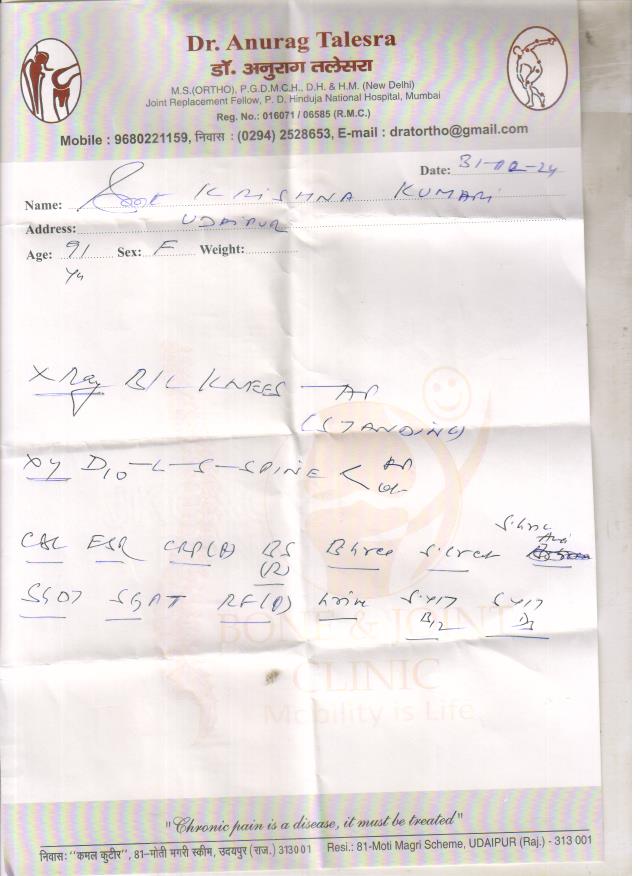 Dr. Anurag Talesra
डॉ. अनुराग तलेसरा
M.S.(ORTHO), P.G.D.M.C.H., D.H. & H.M. (New Delhi)
Joint Replacement Fellow, P. D. Hinduja National Hospital, Mumbai
Reg. No.: 016071 / 06585 (R.M.C.)
Mobile : 9680221159, निवास : (0294) 2528653, E-mail : dratortho@gmail.com
Date:
Name: KRISHNA KUMARI
Address: UDAIPUR
Age: 91 Sex: F Weight:
X Ray B/L KNEES — AP
(STANDING)
Xy D10-L-S-SPINE < AP
CBC ESR CRP(A) BS B.Urea S.Creat
(R)
SGOT RF(A) Urine
B12 D3
BONE & JOINT
CLINIC
Mobility is Life
"Chronic pain is a disease, it must be treated"
निवास: "कमल कुटीर", 81-मोती मगरी स्कीम, उदयपुर (राज.) 313001 Resi.: 81-Moti Magri Scheme, UDAIPUR (Raj.) - 313 001